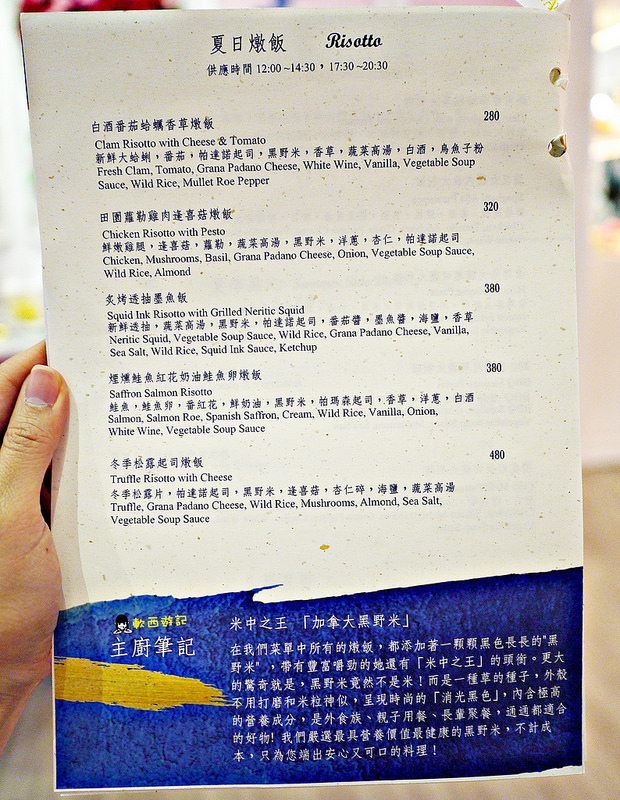 夏日燉飯 Risotto
供應時間 12:00 ~14:30，17:30 ~20:30
白酒番茄蛤蠣香草燉飯 280
Clam Risotto with Cheese & Tomato
新鮮大蛤蜊，番茄，帕達諾起司，黑野米，香草，蔬菜高湯，白酒，烏魚子粉
Fresh Clam, Tomato, Grana Padano Cheese, White Wine, Vanilla, Vegetable Soup
Sauce, Wild Rice, Mullet Roe Pepper
田園蘿勒雞肉逢喜菇燉飯 320
Chicken Risotto with Pesto
鮮嫩雞腿，逢喜菇，蘿勒，蔬菜高湯，黑野米，洋蔥，杏仁，帕達諾起司
Chicken, Mushrooms, Basil, Grana Padano Cheese, Onion, Vegetable Soup Sauce,
Wild Rice, Almond
炙烤透抽墨魚飯 380
Squid Ink Risotto with Grilled Neritic Squid
新鮮透抽，蔬菜高湯，黑野米，帕達諾起司，番茄醬，墨魚醬，海鹽，香草
Neritic Squid, Vegetable Soup Sauce, Wild Rice, Grana Padano Cheese, Vanilla,
Sea Salt, Wild Rice, Squid Ink Sauce, Ketchup
煙燻鮭魚紅花奶油鮭魚卵燉飯 380
Saffron Salmon Risotto
鮭魚，鮭魚卵，番紅花，鮮奶油，黑野米，帕瑪森起司，香草，洋蔥，白酒
Salmon, Salmon Roe, Spanish Saffron, Cream, Wild Rice, Vanilla, Onion,
White Wine, Vegetable Soup Sauce
冬季松露起司燉飯 480
Truffle Risotto with Cheese
冬季松露片，帕達諾起司，黑野米，逢喜菇，杏仁碎，海鹽，蔬菜高湯
Truffle, Grana Padano Cheese, Wild Rice, Mushrooms, Almond, Sea Salt,
Vegetable Soup Sauce
軟西遊記
主廚筆記
米中之王 「加拿大黑野米」
在我們菜單中所有的燉飯，都添加著一顆顆黑色長長的"黑
野米"，帶有豐富嚼勁的她還有「米中之王」的頭銜。更大
的驚奇就是，黑野米竟然不是米！而是一種草的種子，外殼
不用打磨和米粒神似，呈現時尚的「消光黑色」，內含極高
的營養成分，是外食族、親子用餐、長輩聚餐，通通都適合
的好物! 我們嚴選最具營養價值最健康的黑野米，不計成
本，只為您端出安心又可口的料理！